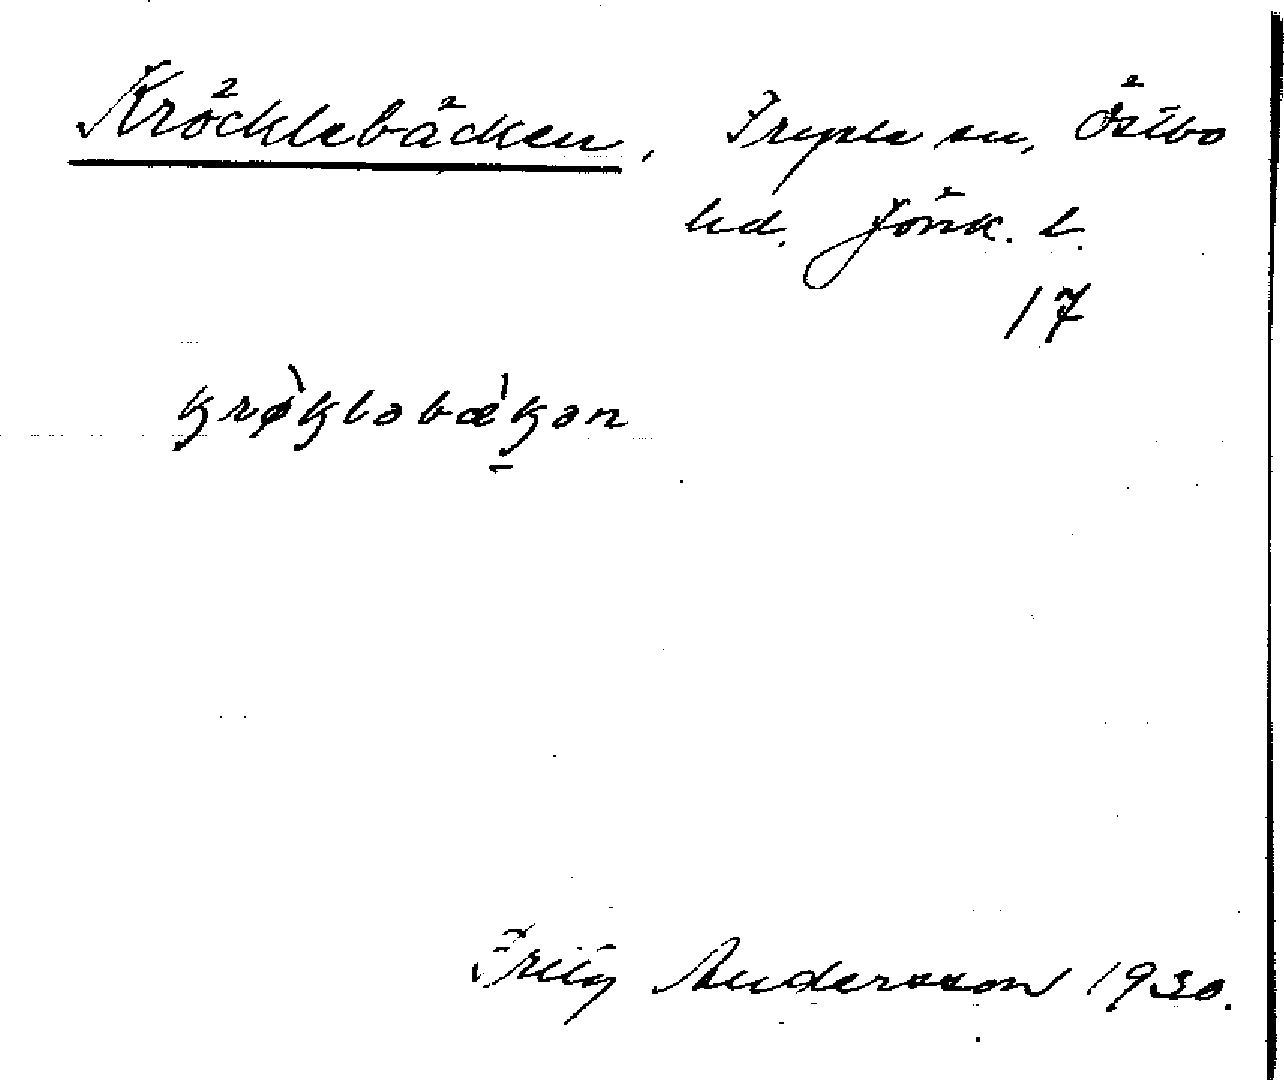 Kröcklebäcken, Fryele sn, Östbo
hd. Jönk. l.
17
krø̀kləbæ̍kən
Fritz Andersson 1930.